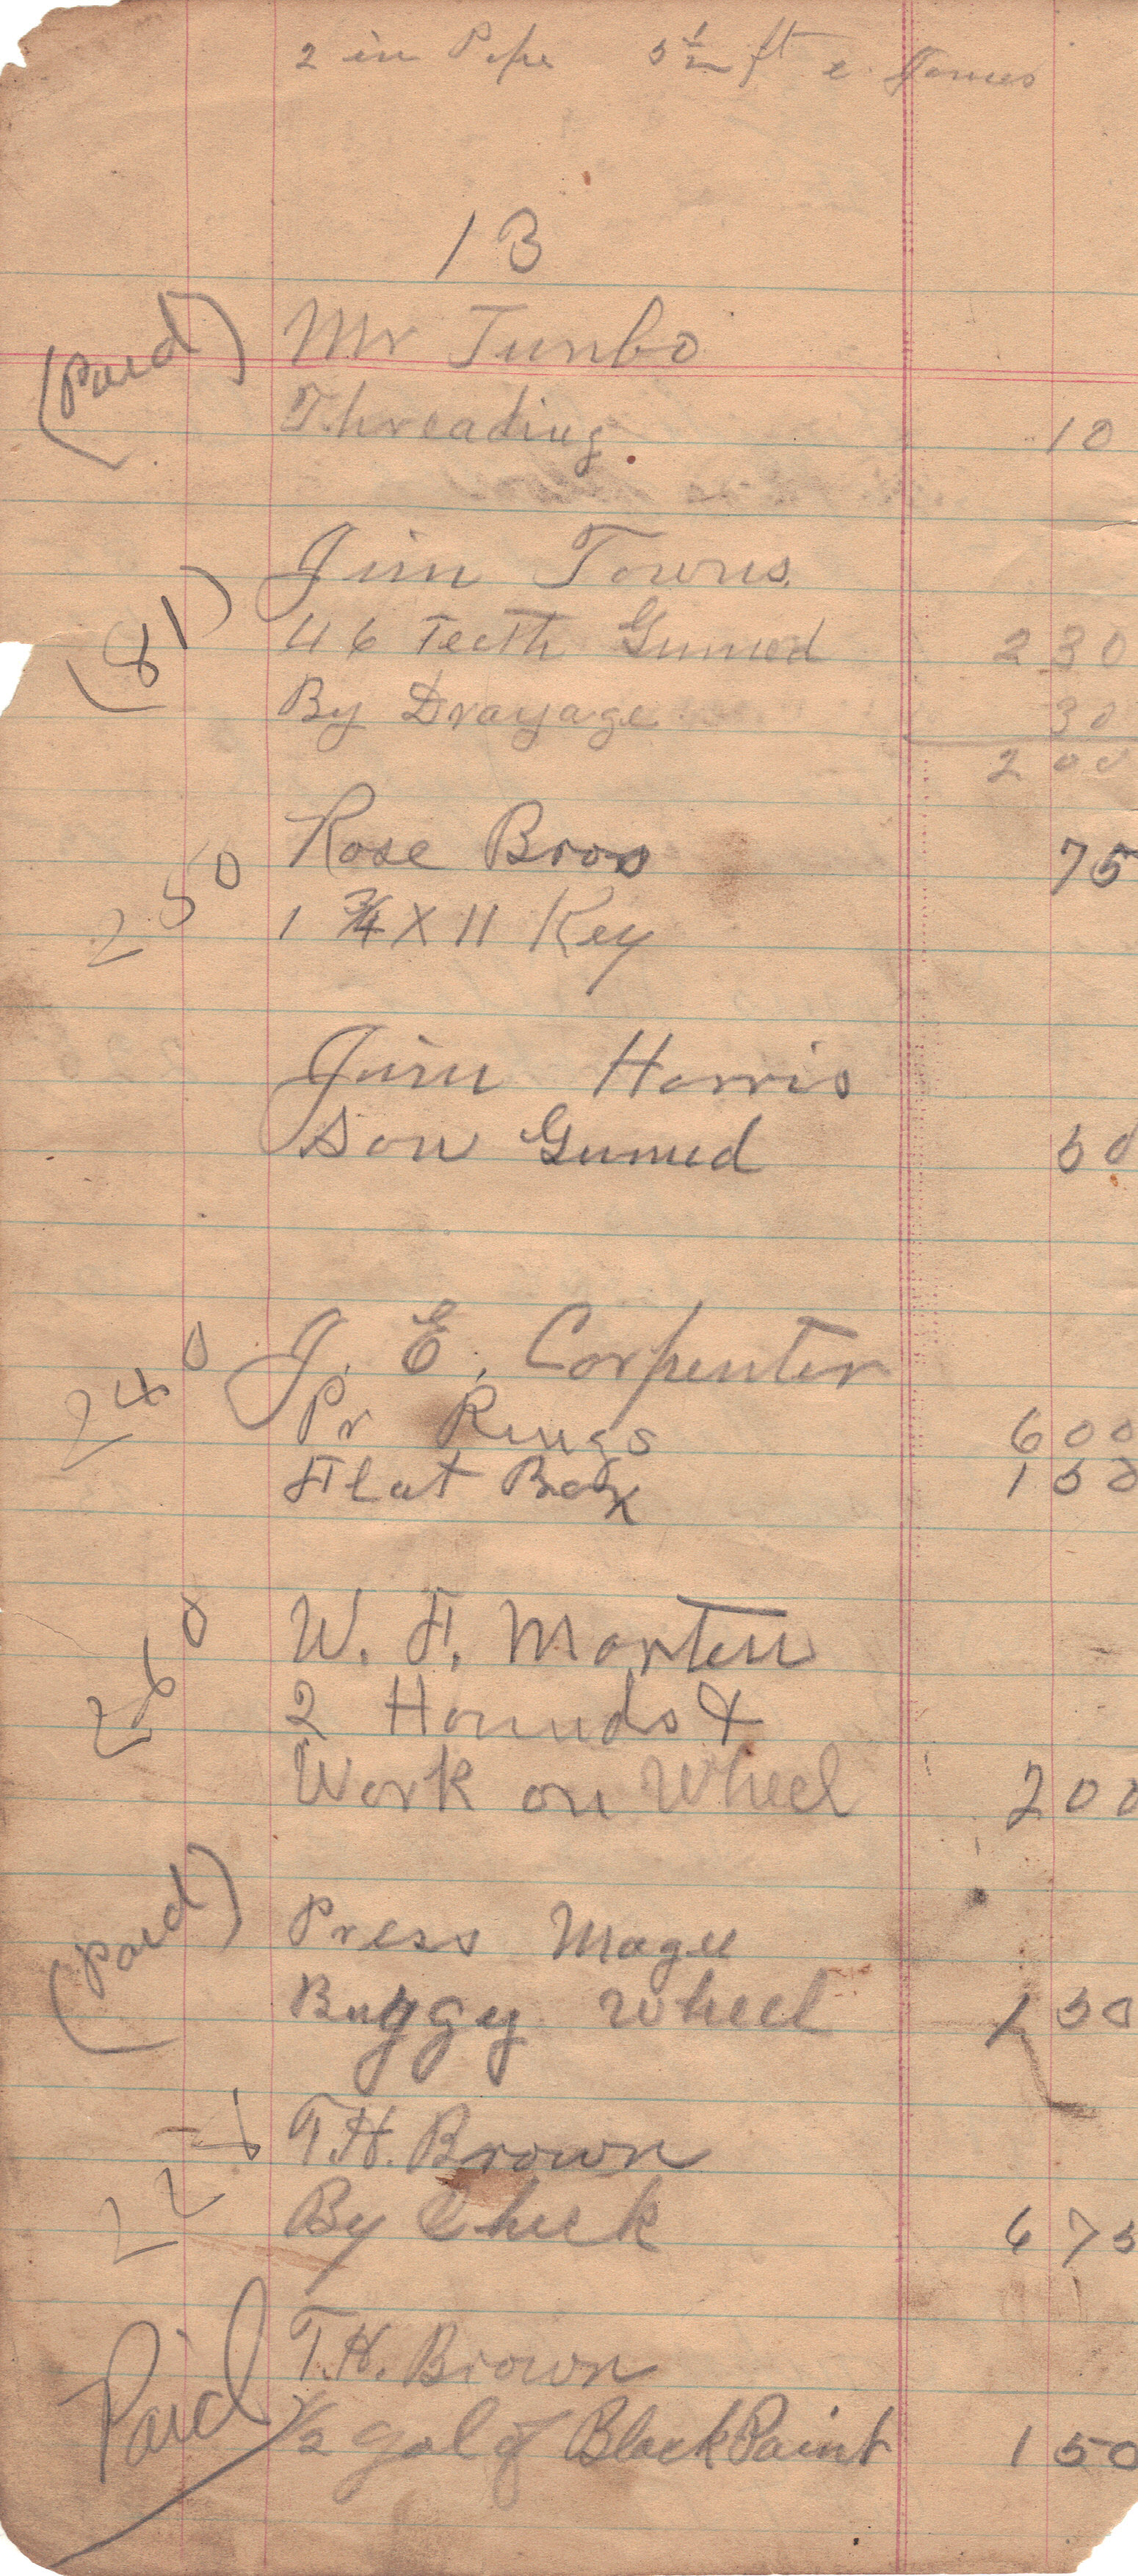 2 in Pipe 5 1/2 ft
13
(Paid) Mr Tunbo
Threading 10
Jim Towns
(81) 46 Teeth Gumed 2 30
By Drayage 30
2 00
Rose Bros 75
250 1 3/4 X 11 Key
Jim Harris
Saw Gumed 50
240 J. E. Carpenter
Pr Rings 6 00
Flat Bar 1 50
260 W. F. Marten
2 Hounds &
Work on Wheel 2 00
(Paid) Press Magee
Buggy Wheel 1 50
T.H. Brown
By Check 6 75
T.H. Brown
Paid 1/2 gal of Black Paint 1 50